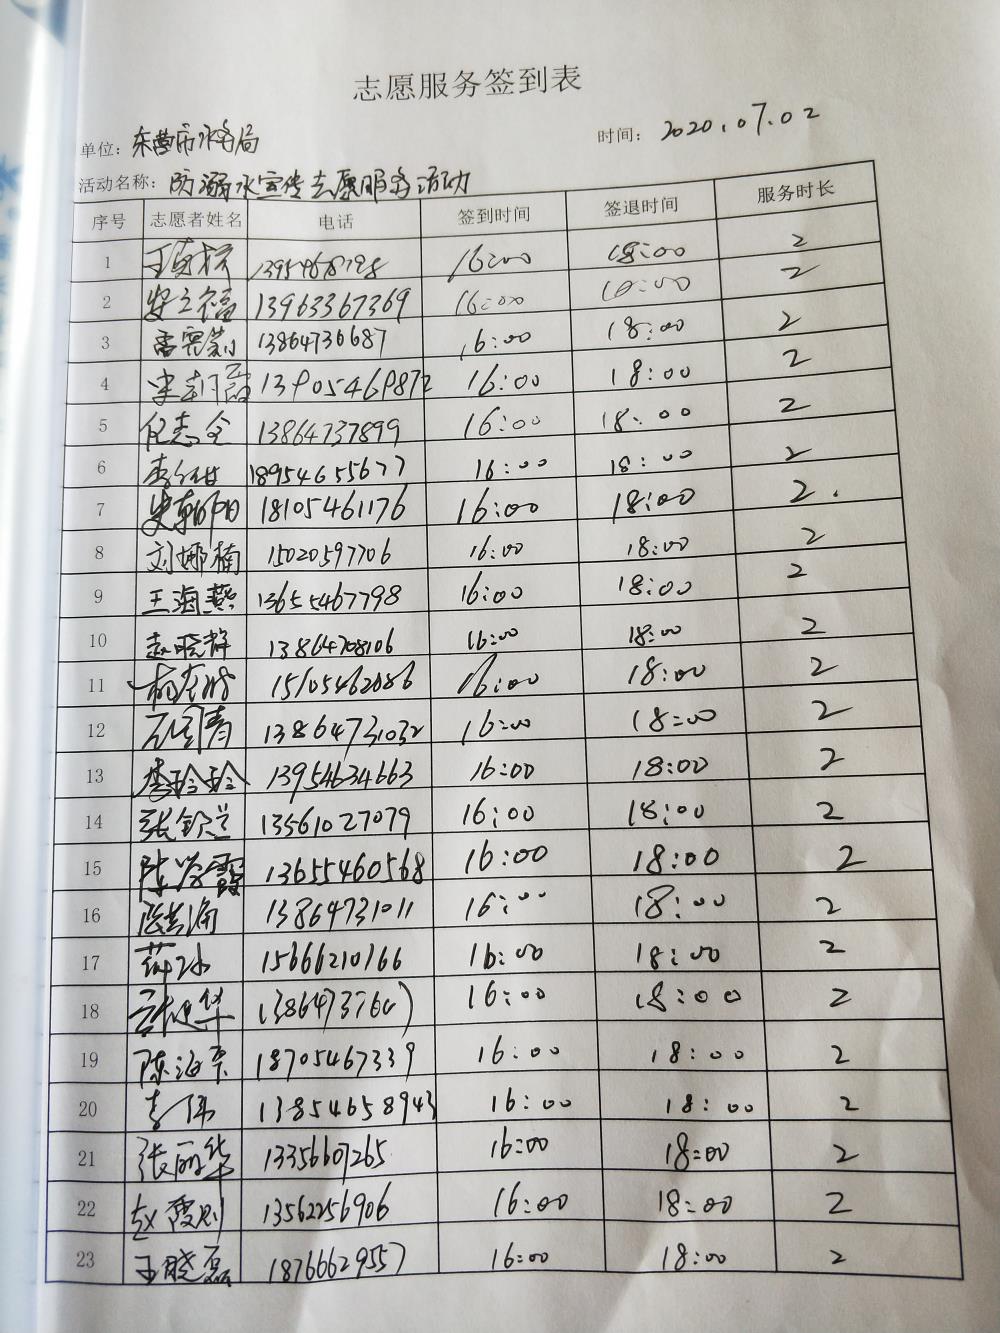 志愿服务签到表
单位：东营市水务局 时间：2020.07.02
活动名称：防溺水宣传志愿服务活动
序号 志愿者姓名 电话 签到时间 签退时间 服务时长
1 16:00 18:00 2
2 安立福 13963367369 16:00 18:00 2
3 13864736687 16:00 18:00 2
4 13905469872 16:00 18:00 2
5 任志全 13864737899 16:00 18:00 2
6 18954655677 16:00 18:00 2
7 史朝阳 18105461176 16:00 18:00 2
8 刘娜楠 15020597706 16:00 18:00 2
9 王海燕 13655467798 16:00 18:00 2
10 赵晓静 13864708106 16:00 18:00 2
11 15105462086 16:00 18:00 2
12 13864731032 16:00 18:00 2
13 李玲玲 13954634663 16:00 18:00 2
14 张钦兰 13561027079 16:00 18:00 2
15 13655460568 16:00 18:00 2
16 13864731011 16:00 18:00 2
17 薛冰 15666210766 16:00 18:00 2
18 16:00 18:00 2
19 陈海燕 18705467339 16:00 18:00 2
20 李伟 13854658943 16:00 18:00 2
21 张丽华 13356607265 16:00 18:00 2
22 赵霞则 13562256906 16:00 18:00 2
23 王晓磊 18766629557 16:00 18:00 2